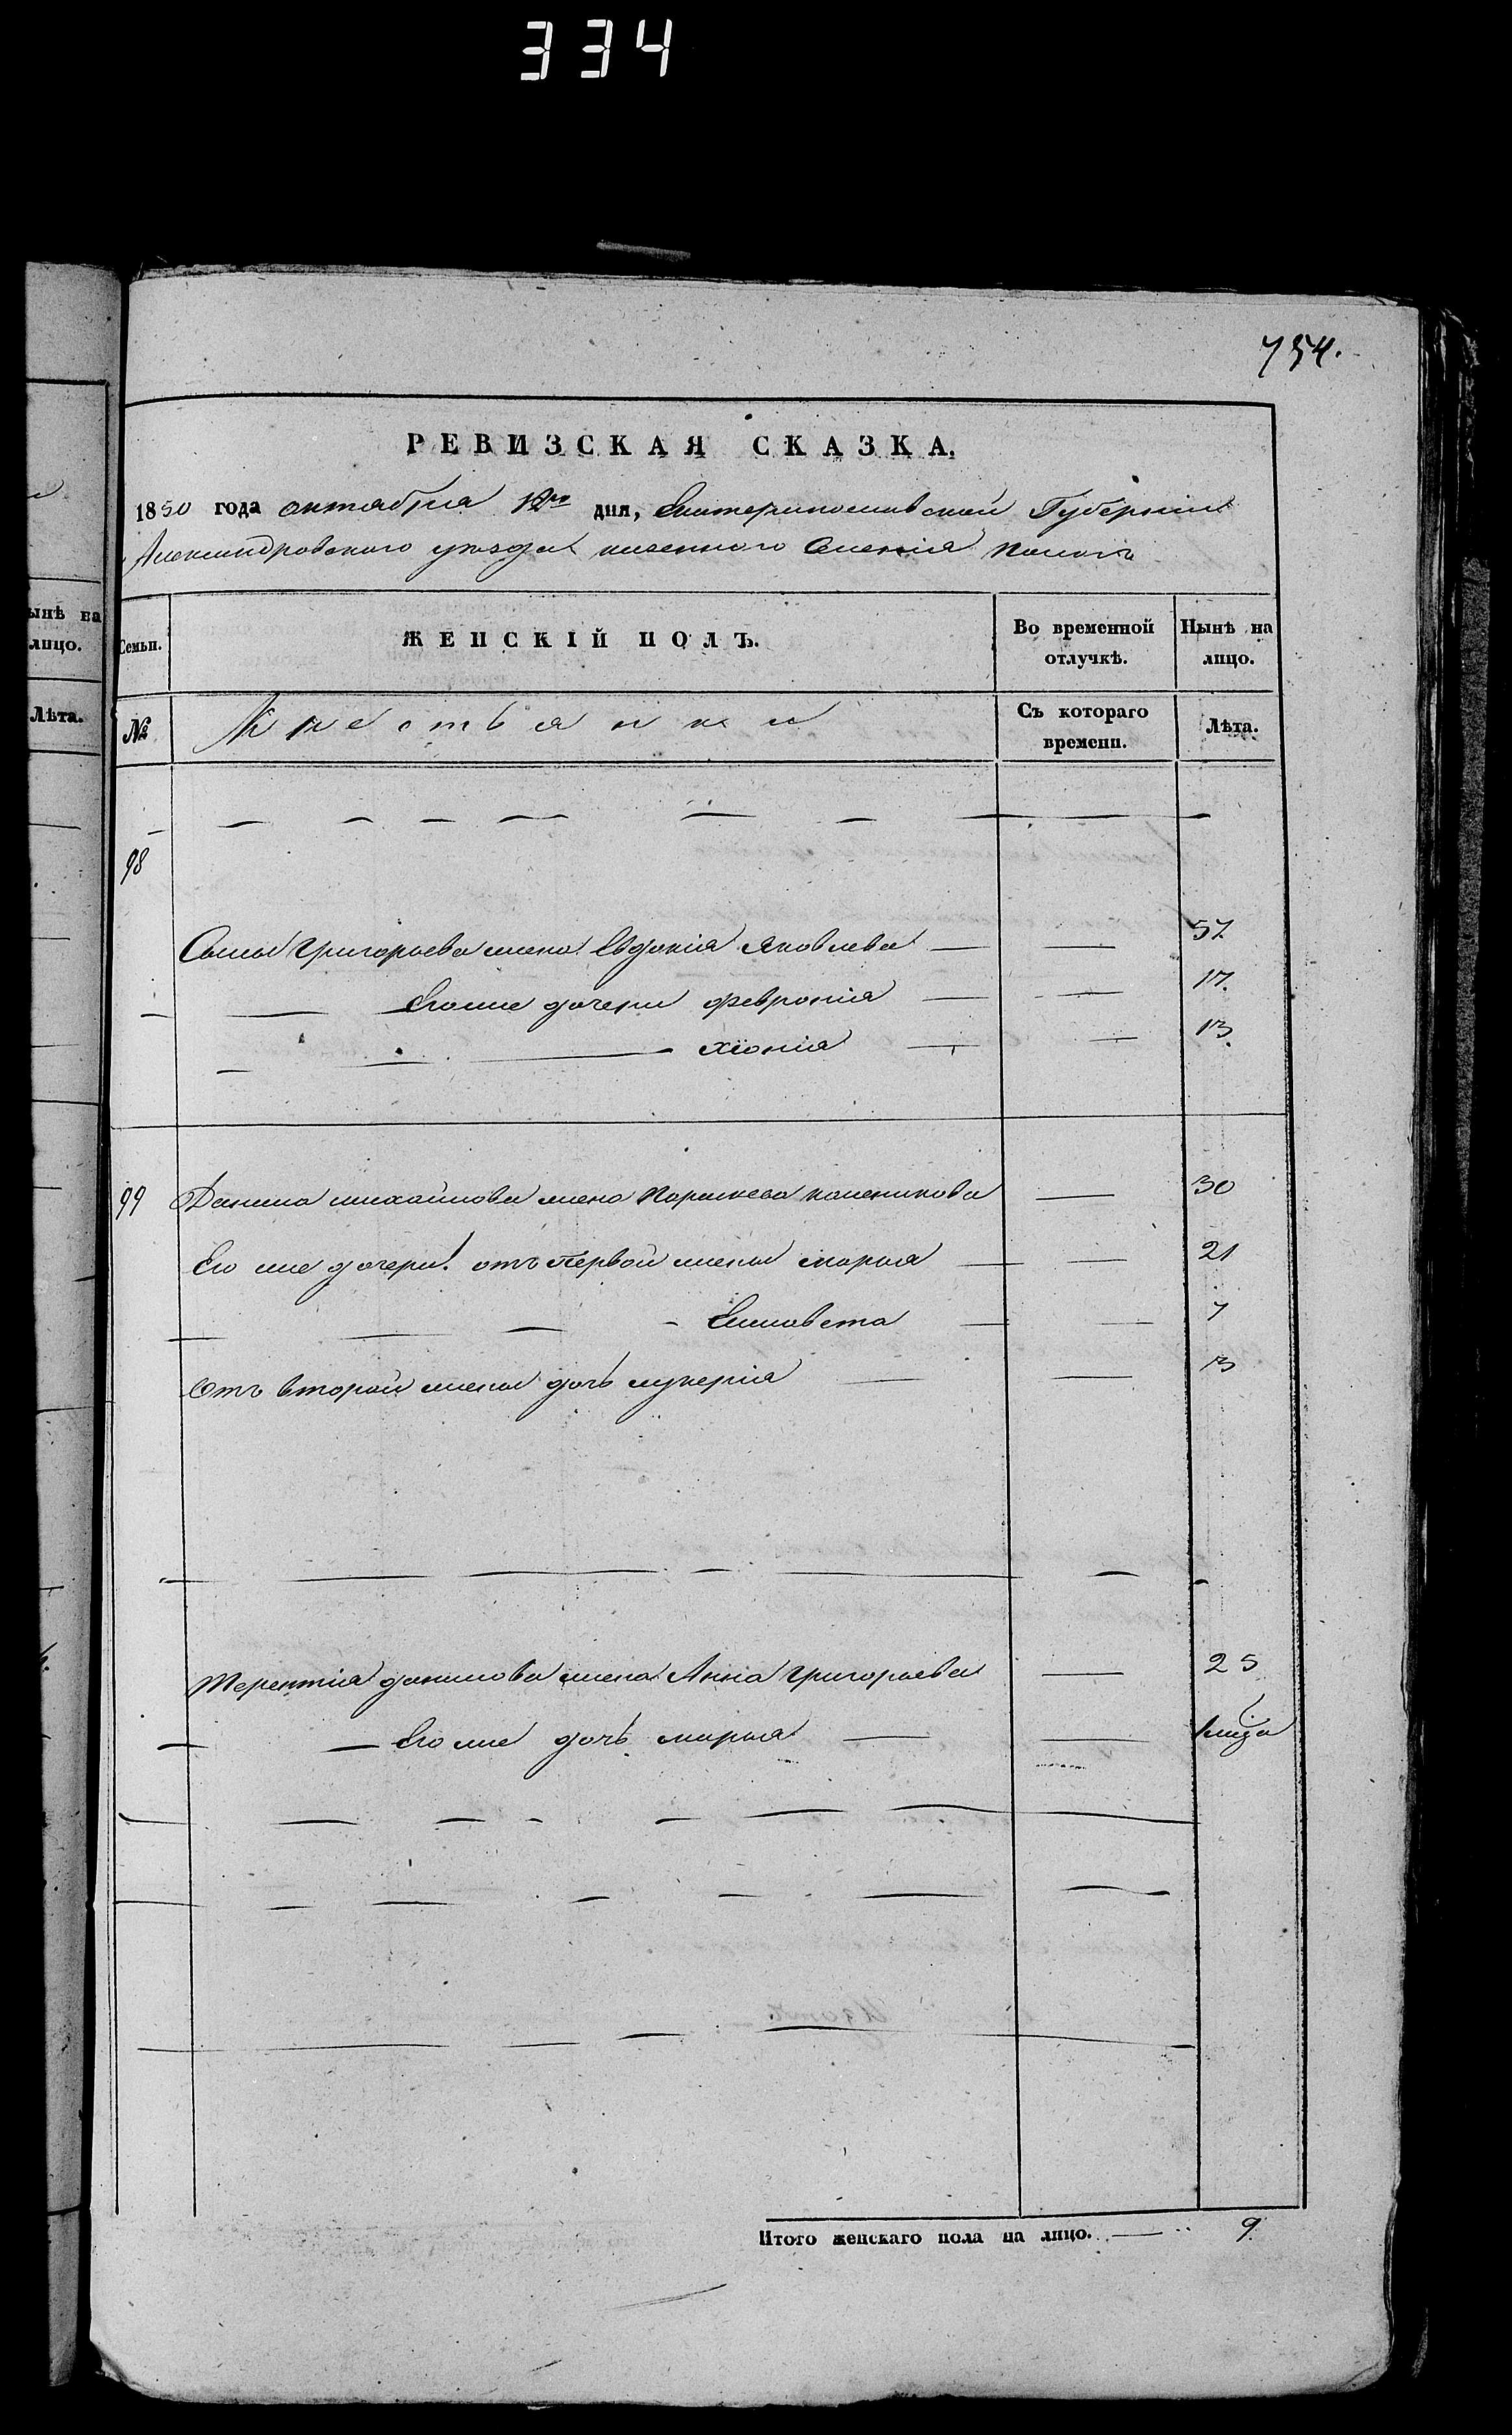 334
754.
РЕВИЗСКАЯ СКАЗКА.
1850 года октября 12го дня, Екатеринославской Губернии
Александровского уезда казенного Селения Пологъ
ынѣ на
лицо.
Лѣта.
Семьи. ЖЕНСКІЙ ПОЛЪ. Во временной отлучкѣ. Нынѣ на лицо.
№ Крестьянки Съ котораго времени. Лѣта.
98
Григорьева жена Евдокія Яковлева — — 57.
Его же дочери Февронія — — 17.
Хіонія — — 13.
99 Данила Михайлова жена Параскева — 30
Его же дочери отъ первой жены Марья — — 21
Елисавета — — 7
Отъ второй жены дочь Лукерія — — 13
Терентія Данилова жена Анна Григорьева — 25
Его же дочь Марья — —
Итого женскаго пола на лицо. — 9